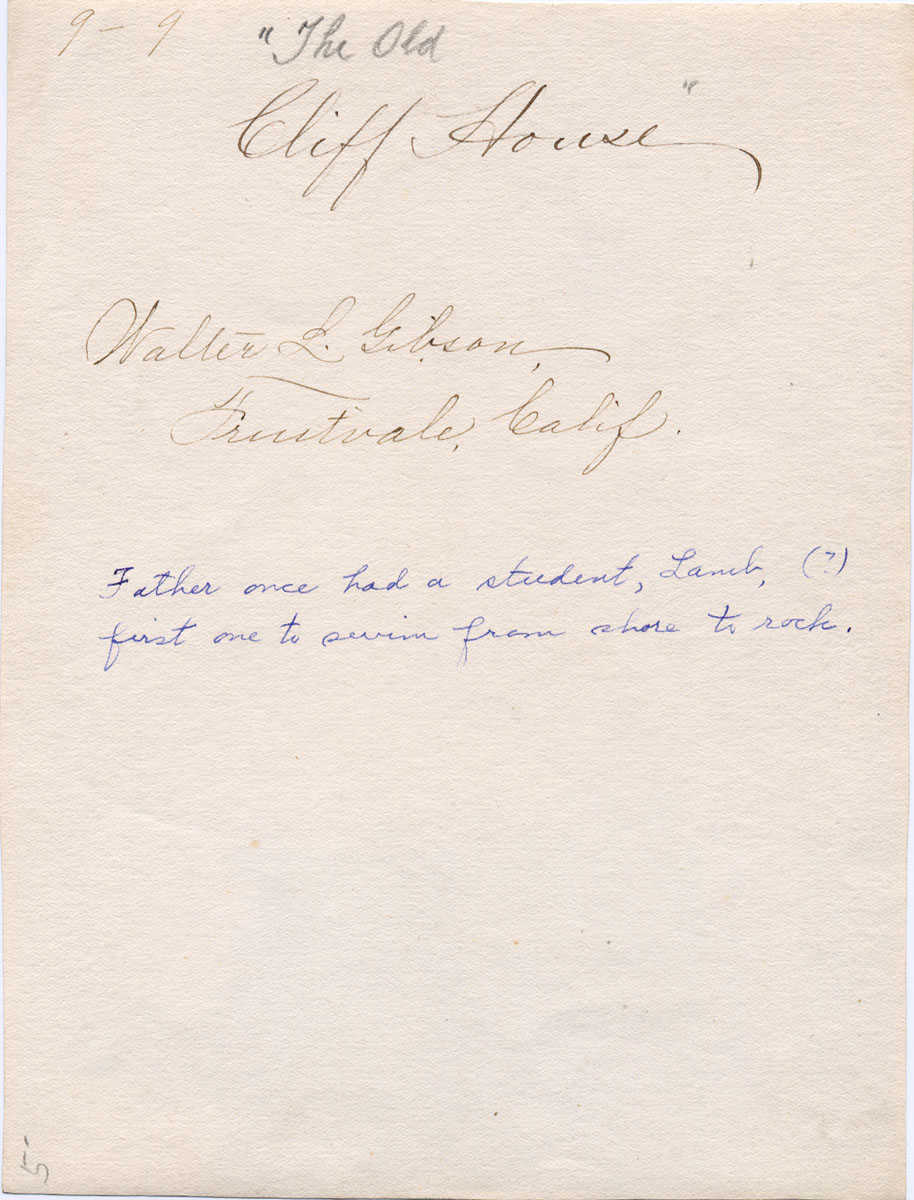 9 - 9
"The Old
Cliff House"
Walter L. Gibson,
Fruitvale, Calif.
Father once had a student, Lamb, (?)
first one to swim from shore to rock.
5